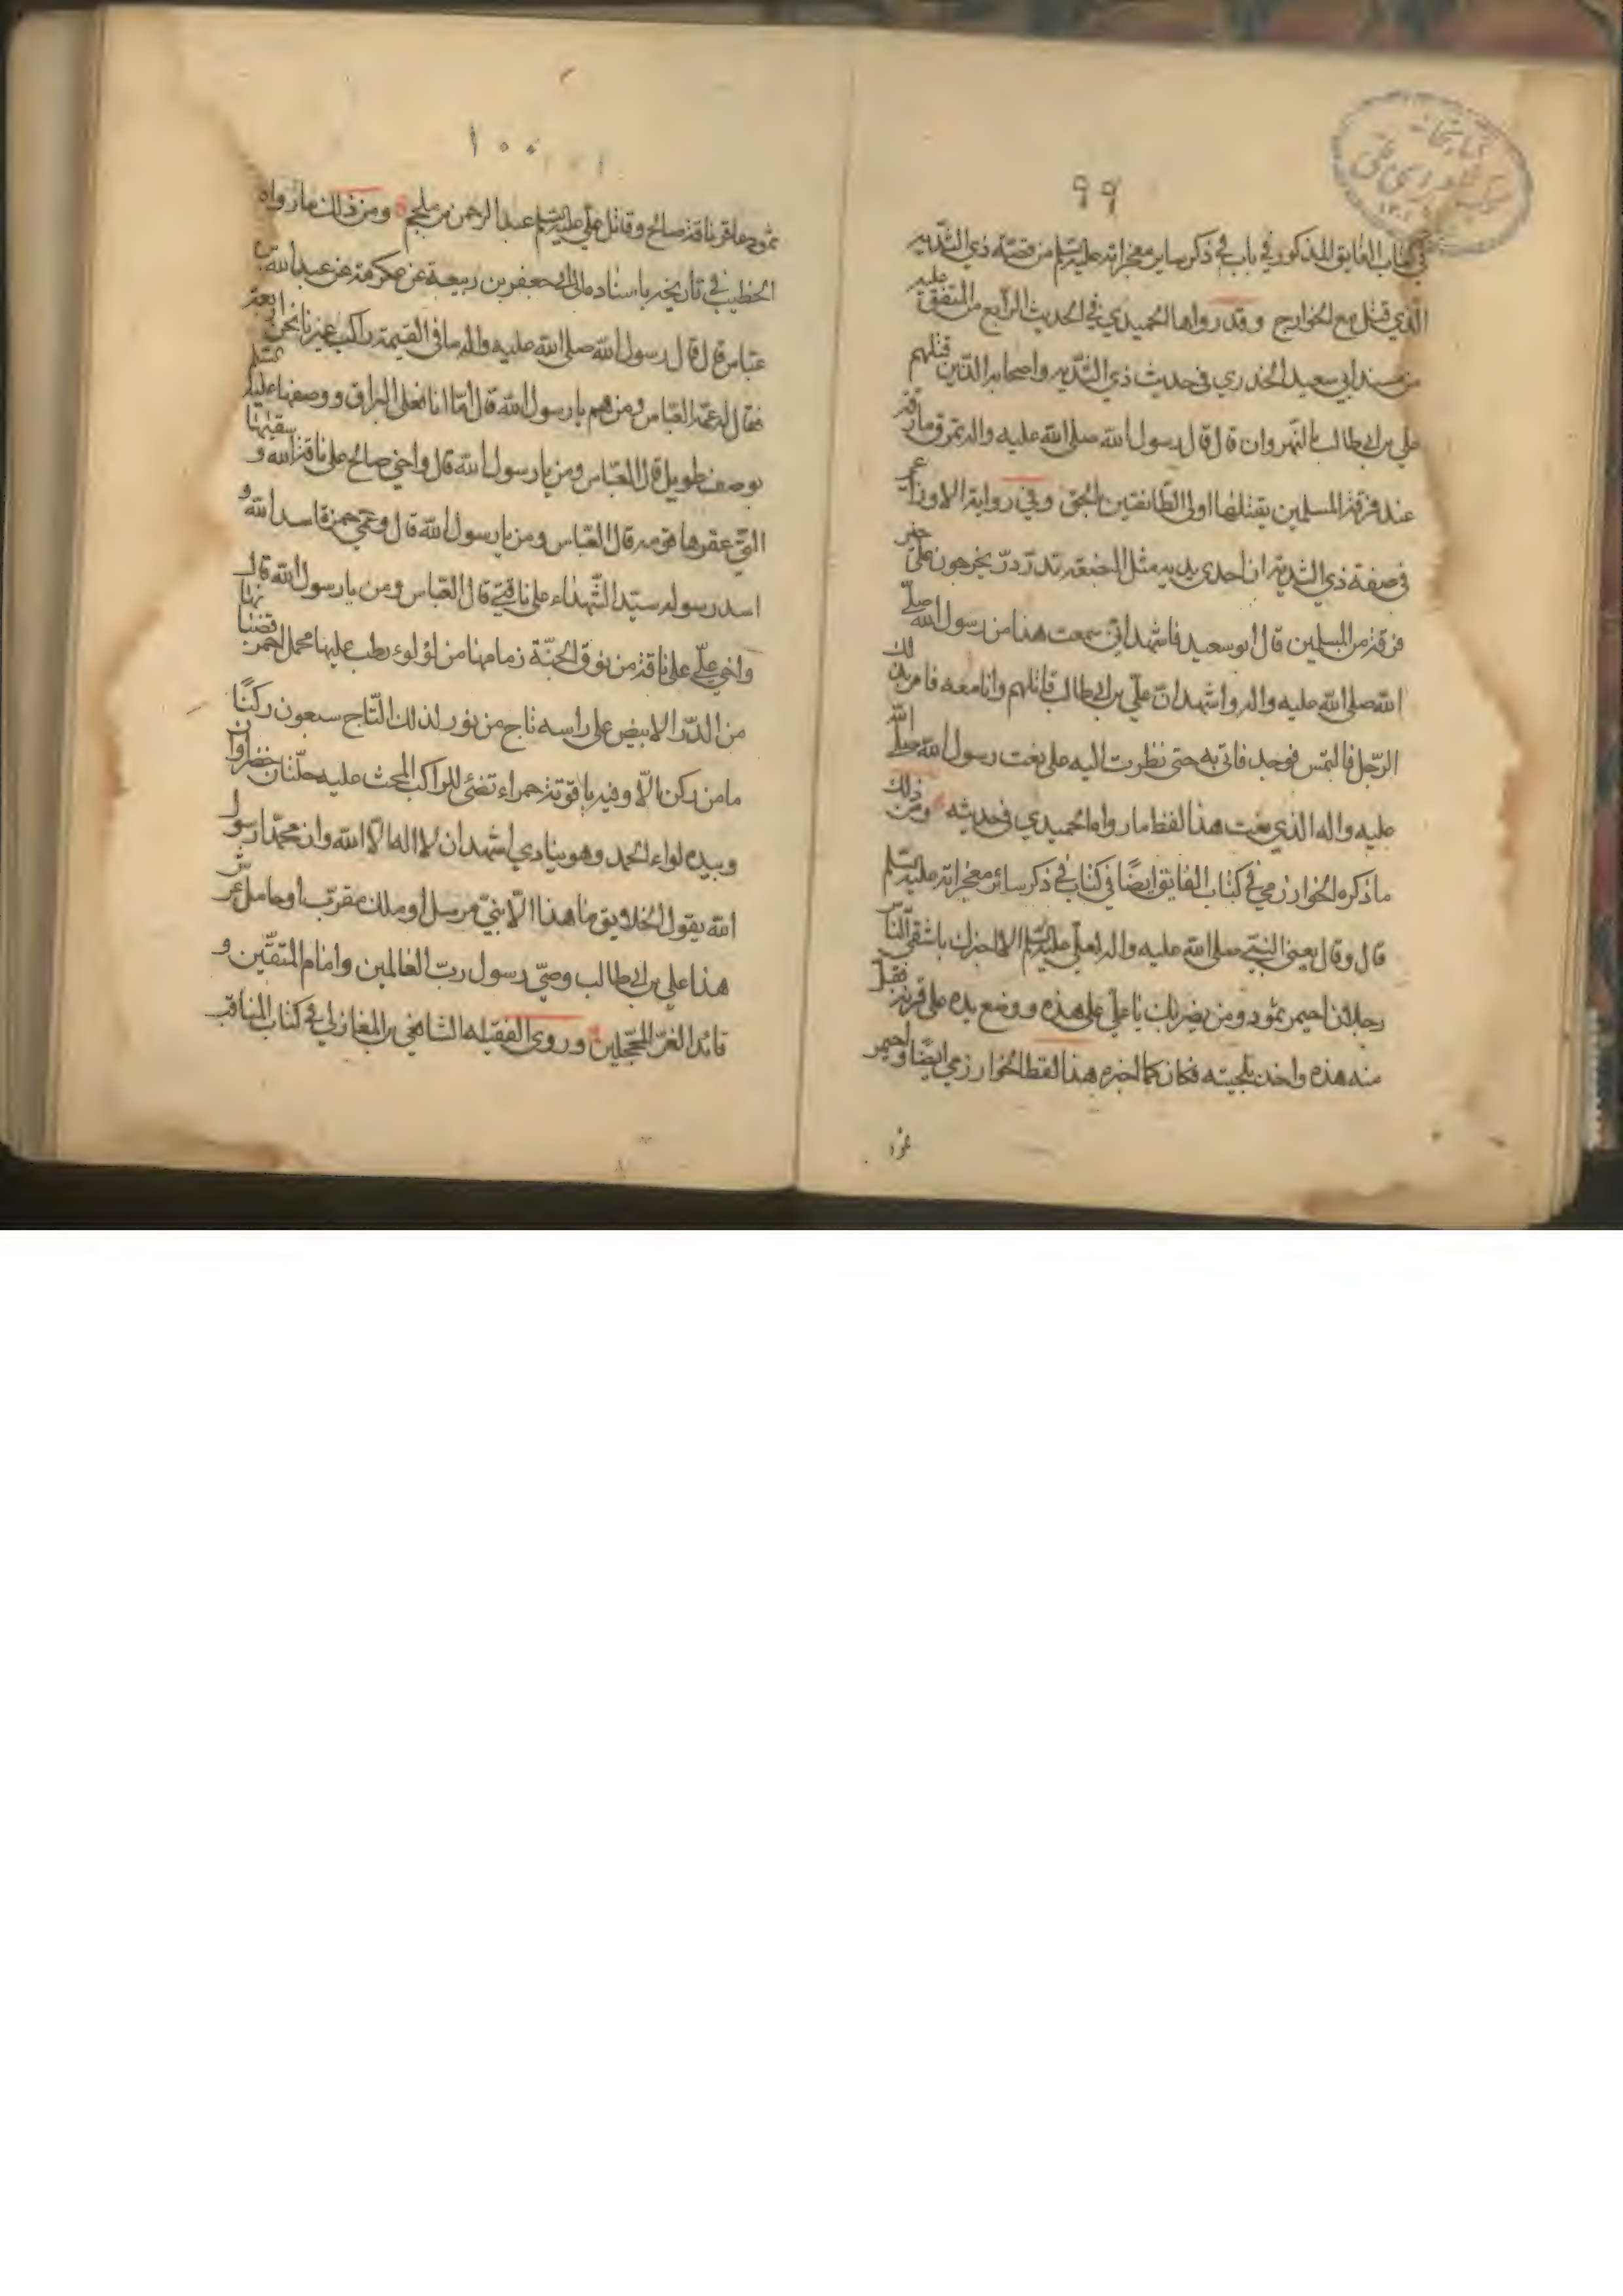 ٩٩
في كتاب الفايق المذكور في باب في ذكر ساير معجزاته عليه السلم من قصة ذي الثديه
الذي قتل مع الخوارج وقد رواها الحميدي في الحديث الرابع من المتفق عليه
من مسند ابي سعيد الخدري في حديث ذي الثديه واصحابه الذين قتلهم
علي بن ابي طالب بالنهروان قال قال رسول الله صلى الله عليه واله تمرق مارقة
عند فرقة المسلمين يقتلها اولى الطائفتين بالحق وفي رواية الاوزاعي
في صفة ذي الثدية ان احدى يديه مثل البضعة تدردر يخرجون على خير
فرقة من المسلمين قال ابو سعيد فاشهد اني سمعت هذا من رسول الله صلى
الله صلى الله عليه واله واشهد ان علي بن ابي طالب قاتلهم وانا معه فامر بذلك
الرجل فالتمس فوجد فاتي به حتى نظرت اليه على نعت رسول الله صلى الله
عليه واله الذي نعت هذا لفظ ما رواه الحميدي في حديثه ومن ذلك
ما ذكره الخوارزمي في كتاب الفايق ايضًا في كتاب في ذكر سائر معجزاته عليه السلم
قال وقال يعني النبي صلى الله عليه واله لعلي عليه السلم الا اخبرك باشقى الناس
رجلان احيمر ثمود ومن يضربك يا علي على هذه ووضع يده على قرنه فتبل
منه هذه واخذ بلحيته فكان كما اخبره هذا لفظ الخوارزمي ايضًا واحيمر
ثمود
١٠٠
ثمود عاقر ناقة صالح وقاتل علي عليه السلم عبد الرحمن بن ملجم ومن ذلك ما رواه
الخطيب في تاريخه باسناده الى جعفر بن ربيعة عن عكرمة عن عبد الله بن
عباس قال قال رسول الله صلى الله عليه واله ما في القيمة راكب غيرنا نحن اربعة
فقال له عمه العباس ومن هم يا رسول الله قال اما انا فعلى البراق ووصفها عليه السلم
بوصف طويل قال العباس ومن يا رسول الله قال واخي صالح على ناقة الله وسقيها
التي عقرها قومه قال العباس ومن يا رسول الله قال وعمي حمزة اسد الله و
اسد رسوله سيد الشهداء على ناقتي قال العباس ومن يا رسول الله قال
واخي علي على ناقة من نوق الجنة زمامها من لؤلوء رطب عليها محمل احمر قضبانها
من الدر الابيض على راسه تاج من نور لذلك التاج سبعون ركنًا
ما من ركن الا وفيه ياقوتة حمراء تضئ للراكب المحث عليه حلتان خضراوان
وبيده لواء الحمد وهو ينادي اشهد ان لا اله الا الله وان محمدا رسول
الله يقول الخلايق ما هذا الا نبي مرسل او ملك مقرب او حامل عرش
هذا علي بن ابي طالب وصي رسول رب العالمين وامام المتقين و
قائد الغر المحجلين وروى الفقيه الشافعي بن المغازلي في كتاب المناقب